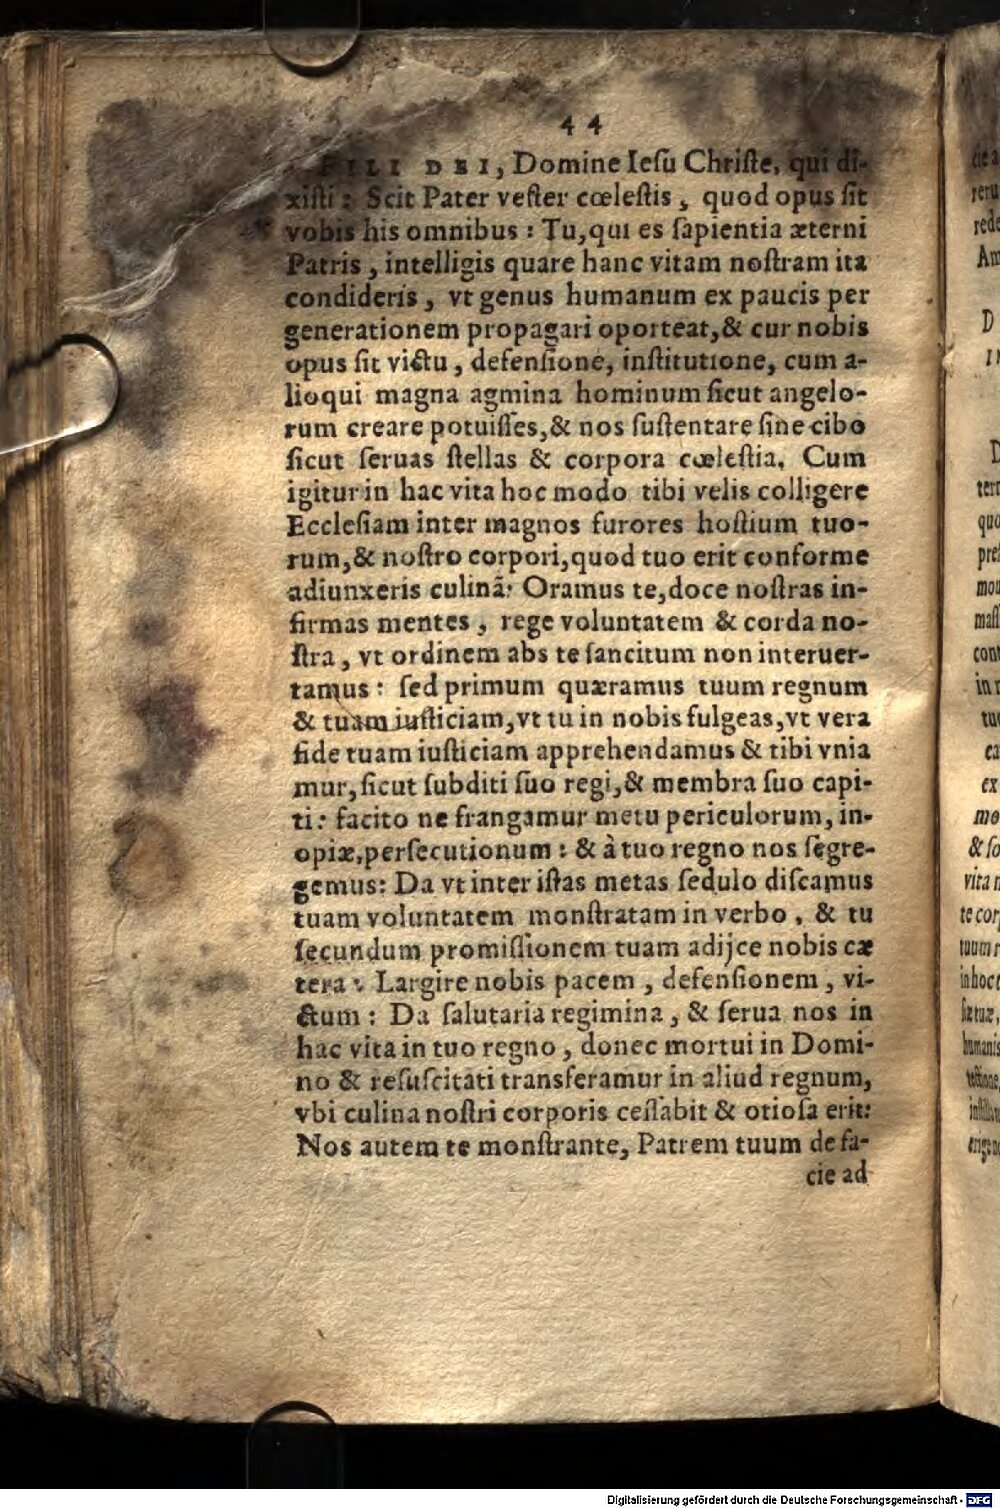 44
FILI DEI, Domine Ieſu Chriſte, qui di-
xiſti: Scit Pater veſter cœleſtis, quod opus ſit
vobis his omnibus: Tu, qui es ſapientia æterni
Patris, intelligis quare hanc vitam noſtram ita
condideris, vt genus humanum ex paucis per
generationem propagari oporteat, & cur nobis
opus ſit victu, defenſione, inſtitutione, cum a-
lioqui magna agmina hominum ſicut angelo-
rum creare potuiſſes, & nos ſuſtentare ſine cibo
ſicut ſeruas ſtellas & corpora cœleſtia. Cum
igitur in hac vita hoc modo tibi velis colligere
Eccleſiam inter magnos furores hoſtium tuo-
rum, & noſtro corpori, quod tuo erit conforme
adiunxeris culinã: Oramus te, doce noſtras in-
firmas mentes, rege voluntatem & corda no-
ſtra, vt ordinem abs te ſancitum non interuer-
tamus: ſed primum quæramus tuum regnum
& tuam iuſticiam, vt tu in nobis fulgeas, vt vera
fide tuam iuſticiam apprehendamus & tibi vnia
mur, ſicut ſubditi ſuo regi, & membra ſuo capi-
ti: facito ne frangamur metu periculorum, in-
opiæ, perſecutionum: & à tuo regno nos ſegre-
gemus: Da vt inter iſtas metas ſedulo diſcamus
tuam voluntatem monſtratam in verbo, & tu
ſecundum promiſſionem tuam adijce nobis cæ
tera: Largire nobis pacem, defenſionem, vi-
ctum: Da ſalutaria regimina, & ſerua nos in
hac vita in tuo regno, donec mortui in Domi-
no & reſuſcitati transferamur in aliud regnum,
vbi culina noſtri corporis ceſſabit & otioſa erit:
Nos autem te monſtrante, Patrem tuum de fa-
cie ad
Digitalisierung gefördert durch die Deutsche Forschungsgemeinschaft - DFG